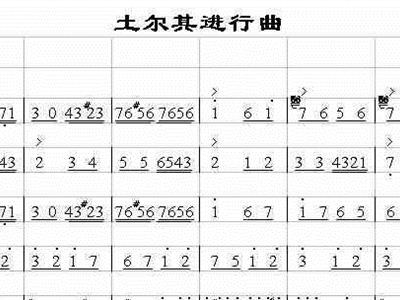 土尔其进行曲
71 | 3 0 43#23 | 76#56 7656 | 1 6 1 | 7 6 5 6 | 7
43 | 2 3 4 | 5 5 6543 | 2 1 2 | 3 3 4321 | 7
71 | 3 0 43#23 | 76#56 7656 | 1 6 7 | 1 7 6 5 | 6
2 | 3 2 1 7 | 6 7 1 2 | 7 5 1 2 | 3 1 2 | 3